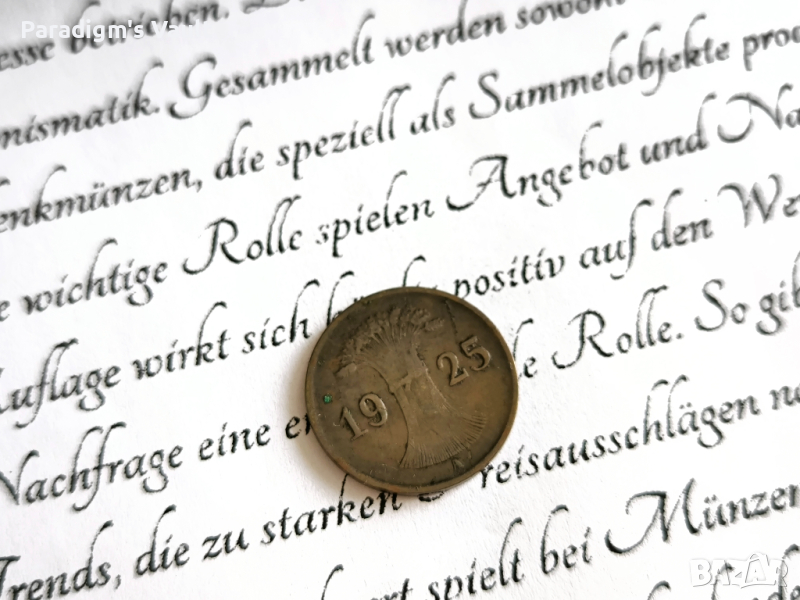 Paradigm's Vault
esse betrieben.
nismatik. Gesammelt werden sowohl
enkmünzen, die speziell als Sammelobjekte pro
e wichtige Rolle spielen Angebot und Na
Auflage wirkt sich positiv auf den We
Nachfrage eine e Rolle. So gib
Trends, die zu starken Preisausschlägen n
spielt bei Münzen
1925
A
BAZAR